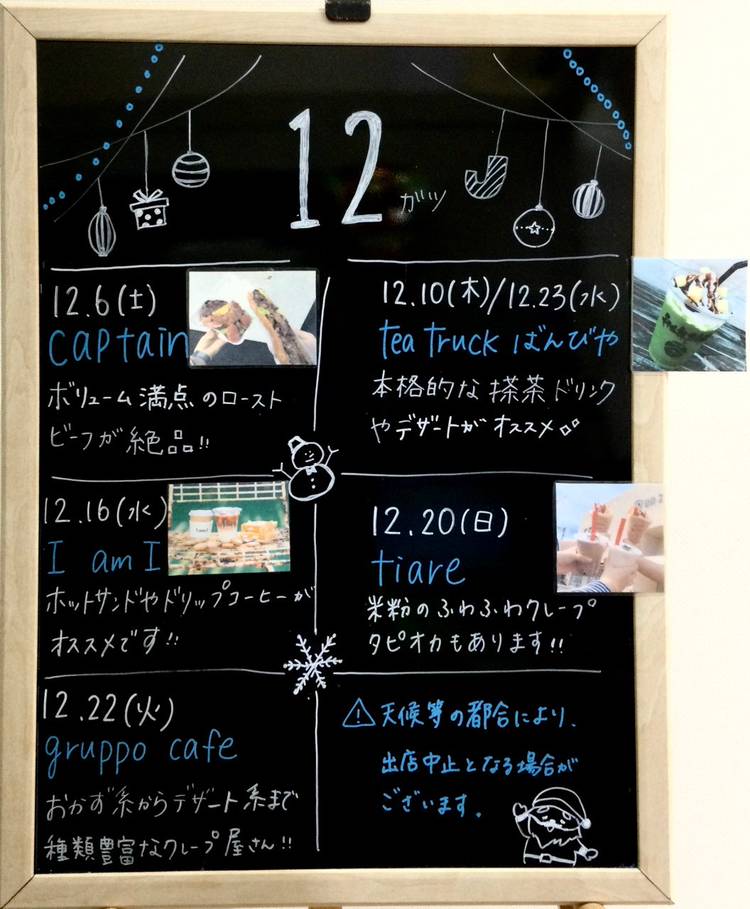 12 ガツ
12.6(土)
captain
ボリューム満点のロースト
ビーフが絶品!!
12.10(木)/12.23(水)
tea truck ばんびや
本格的な抹茶ドリンク
やデザートがオススメ
12.16(水)
I am I
ホットサンドやドリップコーヒーが
オススメです!!
12.20(日)
tiare
米粉のふわふわクレープ
タピオカもあります!!
12.22(火)
gruppo cafe
おかず系からデザート系まで
種類豊富なクレープ屋さん!!
⚠天候等の都合により、
出店中止となる場合が
ございます。